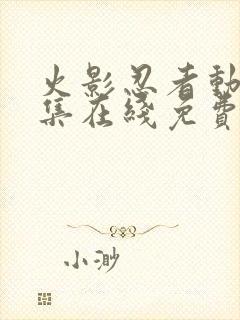 火影忍者動
集在綫免費
小渺